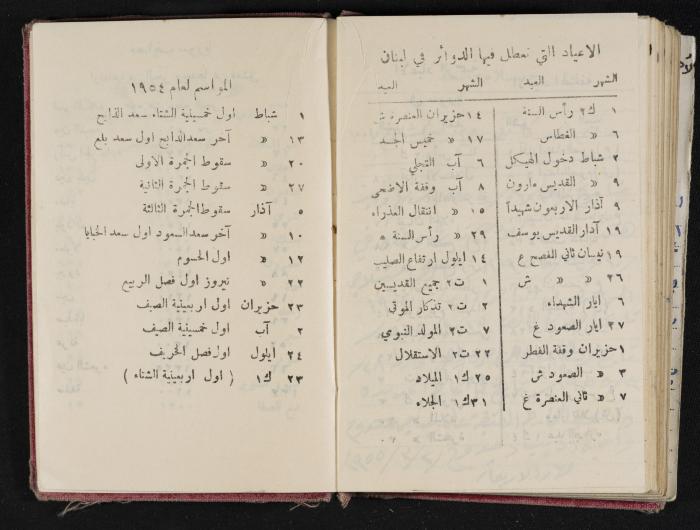 الاعياد التي تعطل فيها الدوائر في لبنان
الشهر العيد
١ ك٢ رأس السنة
٦ « الغطاس
٢ شباط دخول الهيكل
٩ « القديس مارون
٩ آذار الاربعون شهيداً
١٩ آذار القديس يوسف
١٩ نيسان ثاني الفصح غ
٢٦ « « ش
٦ ايار الشهداء
٢٧ ايار الصعود غ
١ حزيران وقفة الفطر
٣ « الصعود ش
٧ « ثاني العنصرة غ
الشهر العيد
١٤ حزيران العنصرة ش
١٧ « خميس الجسد
٦ آب التجلي
٨ آب وقفة الاضحى
١٥ « انتقال العذراء
٢٩ « رأس السنة ه
١٤ ايلول ارتفاع الصليب
١ ت٢ جميع القديسين
٢ ت٢ تذكار الموتى
٧ ت٢ المولد النبوي
٢٢ ت٢ الاستقلال
٢٥ ك١ الميلاد
٣١ ك١ الجلاء
المواسم لعام ١٩٥٤
١ شباط اول خمسينية الشتاء سعد الذابح
١٣ « آخر سعد الذابح اول سعد بلع
٢٠ « سقوط الجمرة الاولى
٢٧ « سقوط الجمرة الثانية
٥ آذار سقوط الجمرة الثالثة
١٠ « آخر سعد السعود اول سعد الخبايا
١٢ « اول الحسوم
٢٢ « نيروز اول فصل الربيع
٢٣ حزيران اول اربعينية الصيف
٢ آب اول خمسينية الصيف
٢٤ ايلول اول فصل الخريف
٢٣ ك١ ( اول اربعينية الشتاء )